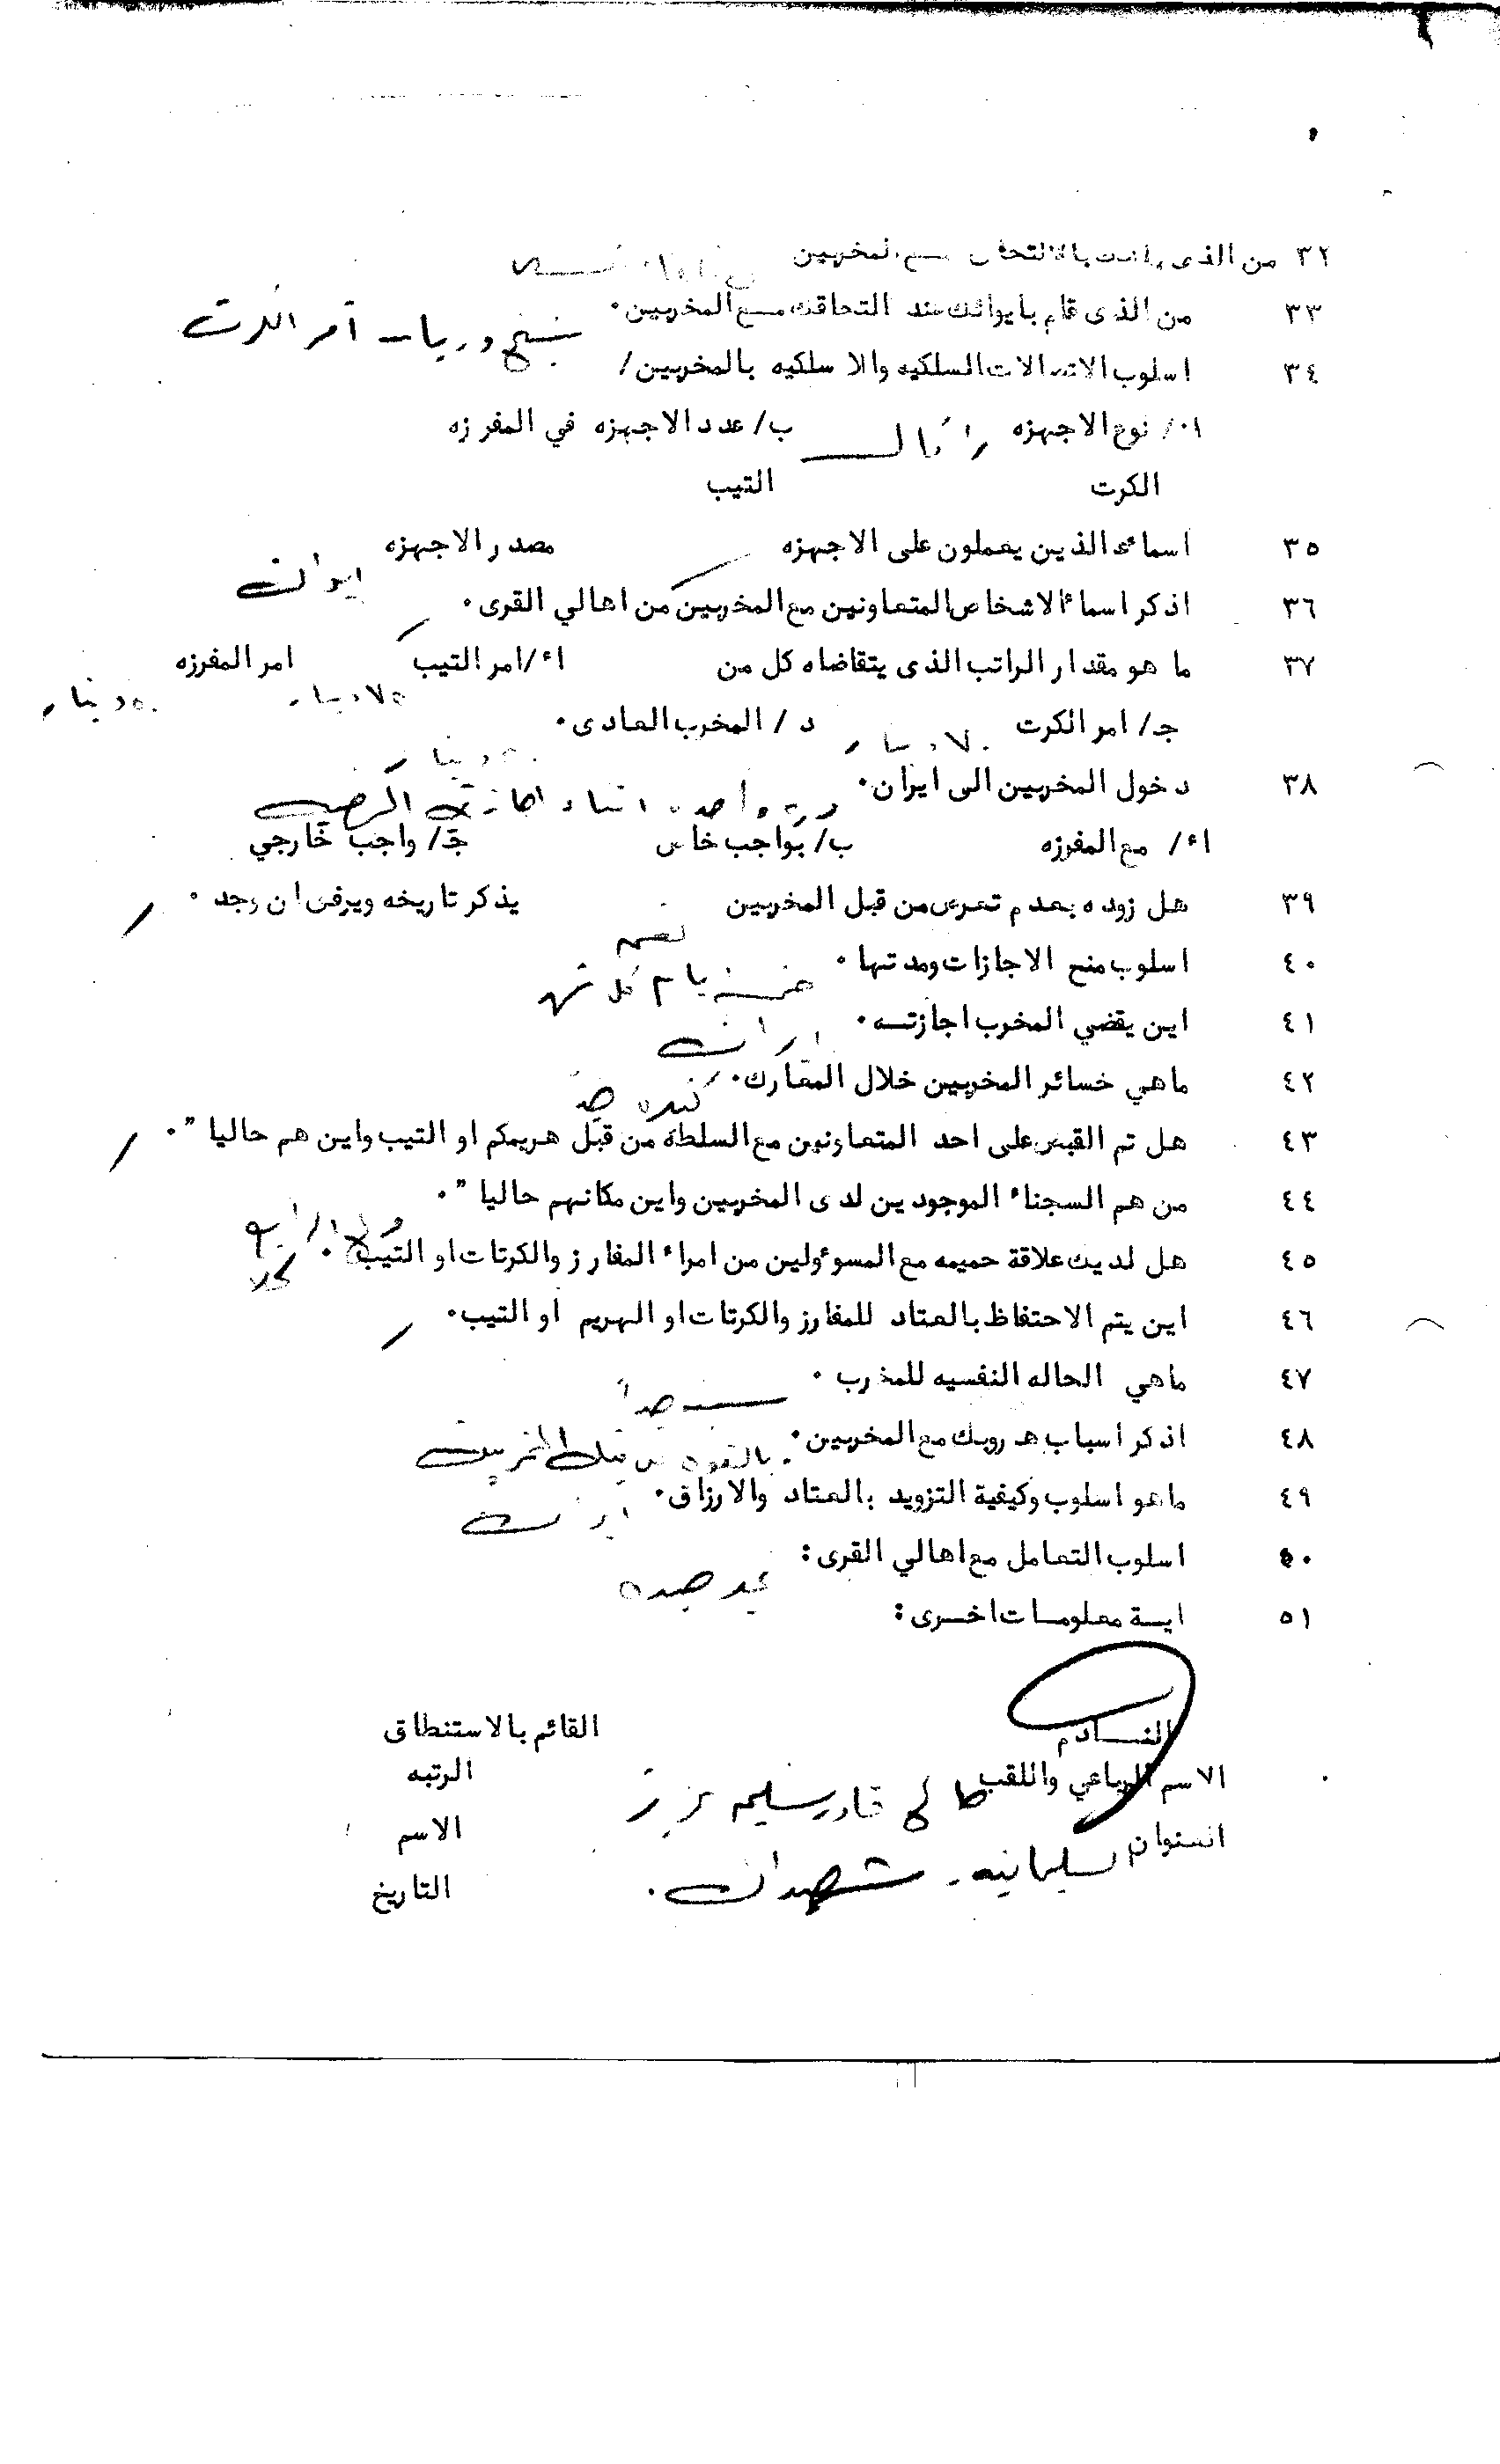 ٣٢ من الذى بالالتحاق مع المخربين
٣٣ من الذى قام بايوائك عند التحاقك مــع المخربين٠ شيخ وريا ـ آمر الكرت
٣٤ اسلوب الاتصالات السلكيه والاسلكيه بالمخربين/
ا٠/ نوع الاجهزه راكال ب/ عدد الاجهزه في المفرزه
الكرت التيب
٣٥ اسمائه الذين يعملون على الاجهزه مصدر الاجهزه ايران
٣٦ اذكر اسماء الاشخاص المتعاونين مع المخربين من اهالي القرى٠
٣٧ ما هو مقدار الراتب الذى يتقاضاه كل من اء/امر التيب امر المفرزه
دينار دينار
جـ/ امر الكرت دينار د / المخرب العادى٠
دينار
٣٨ دخول المخربين الى ايران٠ مرة واحده اثناء اجازتي المرضيه
اء/ مع المفرزه ب/ بواجب خاص جـ/ واجب خارجي
٣٩ هل زوده بعدم تعرض من قبل المخربين يذكر تاريخه ويرفق ان وجد ٠
نعم
٤٠ اسلوب منح الاجازات ومدتها٠ خمسة ايام كل شهر
٤١ اين يقضي المخرب اجازتــه٠ ايران
٤٢ ماهي خسائر المخربين خلال المعارك٠ كثيره جدا
٤٣ هل تم القبض على احد المتعاونين مع السلطة من قبل هريمكم او التيب واين هم حاليا "٠
٤٤ من هم السجناء الموجودين لدى المخربين واين مكانهم حاليا "٠
٤٥ هل لديك علاقة حميمه مع المسوءولين من امراء المفارز والكرتات او التيب٠ كلا
٤٦ اين يتم الاحتفاظ بالعتاد للمفارز والكرتات او الهريم او التيب٠
٤٧ ماهي الحاله النفسيه للمخرب ٠ سيئه جدا
٤٨ اذكر اسباب هروبك مع المخربين٠ بالقوه من قبل المخربين
٤٩ ماهو اسلوب وكيفية التزويد بالعتاد والارزاق٠ ايران
٥٠ اسلوب التعامل مع اهالي القرى: غير جيده
٥١ ايــة معلومــات اخــرى:
القــادم القائم بالاستنطاق
الاسم الرباعي واللقب قادر الرتبه
الاسم
العنوان السليمانيه ـ شهيدان٠ التاريخ